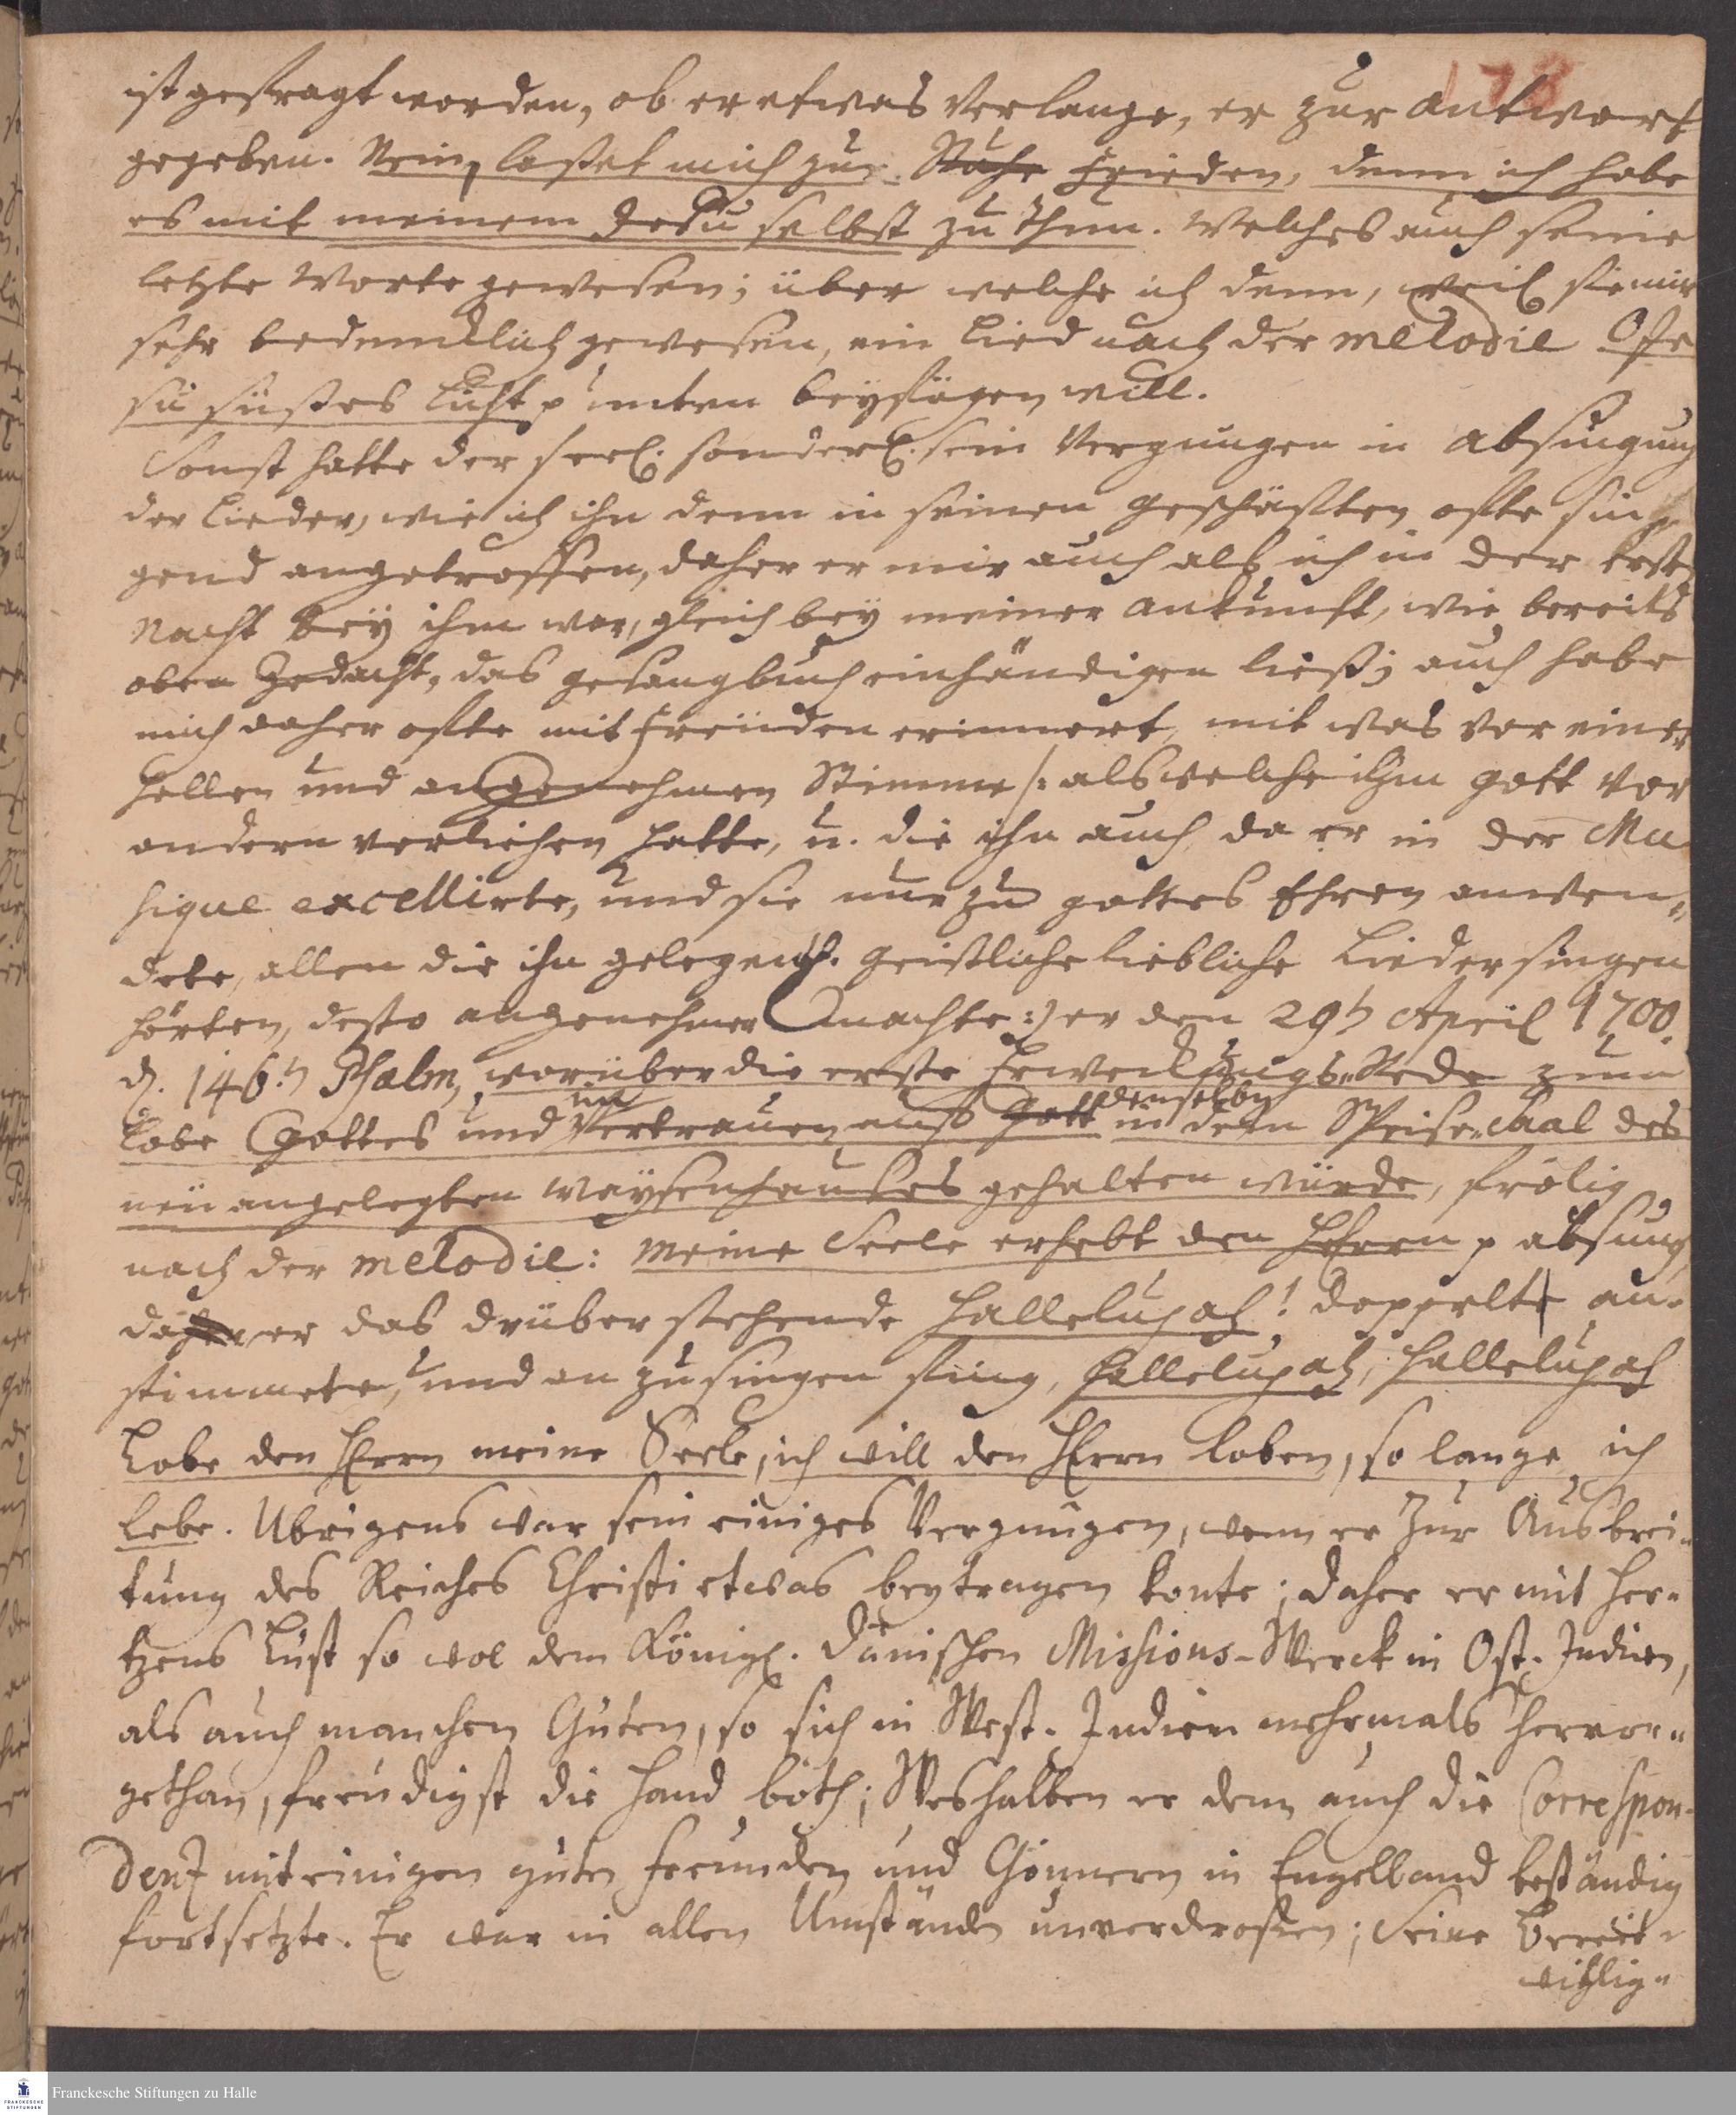 178
ist gefragt worden, ob er etwas verlange, er zur antwort
gegeben. Nein, laßet mich zu Ruhe Frieden, denn ich habe
es mit meinem Jesu selbst zu thun. Welches auch seine
letzte Worte gewesen; über welche ich denn, weil sie mir
sehr bedencklich gewesen, ein Lied nach der melodie O Je
su süßes Licht p unten beyfügen will.
Sonst hatte der seel. sonderl. sein Vergnügen in absingung
der Lieder, wie ich ihn denn in seinen geschäfften offte sin
gend angetroffen, daher er mir auch als ich in der letzten
Nacht bey ihm war, gleich bey meiner ankunfft, wie bereits
oben gedacht, das gesangbuch einhändigen ließ; auch habe
mich daher offte mit Freuden erinnert, mit was vor einer
hellen und angenehmen Stimme /: als welche ihm gott vor
andern verliehen hatte, u. die ihn auch da er in der Mu
sique excellirte, und sie nur zu gottes Ehren anwen„
dete, allen die ihn gelegentl. geistliche liebliche Lieder singen
hörten, desto angenehmer machte :/ er den 29t. April 1700.
d. 146t. Psalm, worüber die erste Erweckungs„Rede zum
Lobe Gottes und im Vertrauen auf Gott denselben in dem Speise„Saal des
neu angelegten Waysenhauses gehalten wurde, frölig
nach der melodie: Meine Seele erhebt den HErrn p absung,
daher er das drüber stehende Hallelujah! doppelt an-
stimmete, und an zu singen fing, Hallelujah, Hallelujah
Lobe den HErrn meine Seele, ich will den HErrn loben, so lange ich
lebe. Ubrigens war sein einiges Vergnügen, wenn er zur Ausbrei-
tung des Reiches Christi etwas beytragen konte; daher er mit Her-
tzens Lust so wol dem Königl. Dänischen Missions-Werck in Ost-Indien,
als auch manchen Guten, so sich in West-Indien mehrmals hervor-
gethan, freudigst die Hand both; Weshalben er denn auch die Correspon-
denz mit einigen guten Freunden und Gönnern in Engelland beständig
fortsetzte. Er war in allen Umständen unverdroßen; Seine Bereit-
willig„
Franckesche Stiftungen zu Halle
FRANCKESCHE
STIFTUNGEN